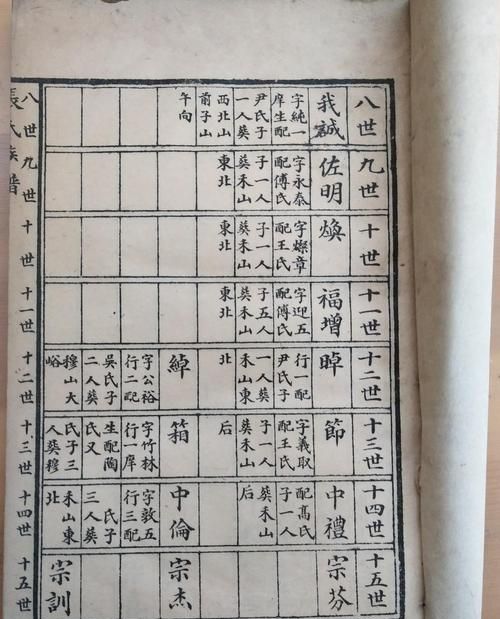 八世
我誠
字純一
庠生配
尹氏子
一人葵
西北山
前子山
午向
九世
佐明
字永泰
配傅氏
子一人
葵禾山
東北
十世
煥
字燦章
配王氏
子一人
葵禾山
東北
十一世
福增
字迎五
配傅氏
子五人
葵禾山
東北
十二世
晫
行一配
尹氏子
一人葵
禾山東
北
綽
字公裕
行二配
吳氏子
二人葵
穆山大
峪
十三世
節
字義取
配王氏
子一人
葵禾山
后
箱
字竹林
行一庠
生配陶
氏又
氏子三
人葵穆
十四世
中禮
配高氏
子一人
葵禾山
后
中倫
字敦五
行三配
氏子
三人葵
禾山東
北
十五世
宗芬
宗杰
宗訓
張氏族譜
八世
九世
十世
十一世
十二世
十三世
十四世
十五世